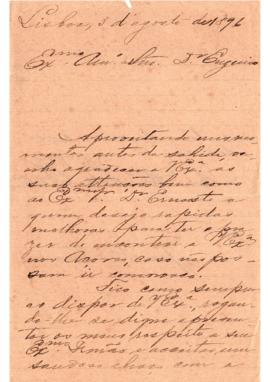 Lisboa, 3 d'agosto de 1896
Exmo Amo e Snr. Dr. Eugenio
Aproveitando uns mo-
mentos antes da sahida, ve-
nho agradecer a V. Exa. as
suas attenções bem como
ao Exmo Snr. D. Ernesto a
quem desejo rapidas
melhoras para ter o pra-
zer de encontrar a V. Exa
nos Açores, caso não pos-
sam ir commosco.
Fico como sempre
ao dispor de V. Exa, rogan-
do-lhe se digne apresen-
tar os meus respeitos a seu
Exmo Irmão e acceitar um
saudoso